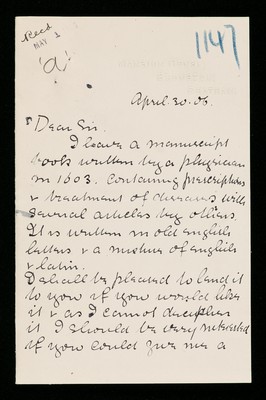 Recd
MAY 1
'a'
1147
April 30. 06.
"Dear Sir.
I have a manuscript
book written by a physician
in 1603. Containing prescriptions
& treatment of diseases with
several articles by others.
It is written in old english
letters & a mixture of english
& latin.
I shall be pleased to lend it
to you if you would like
it & as I cannot decipher
it I should be very interested
if you could give me a